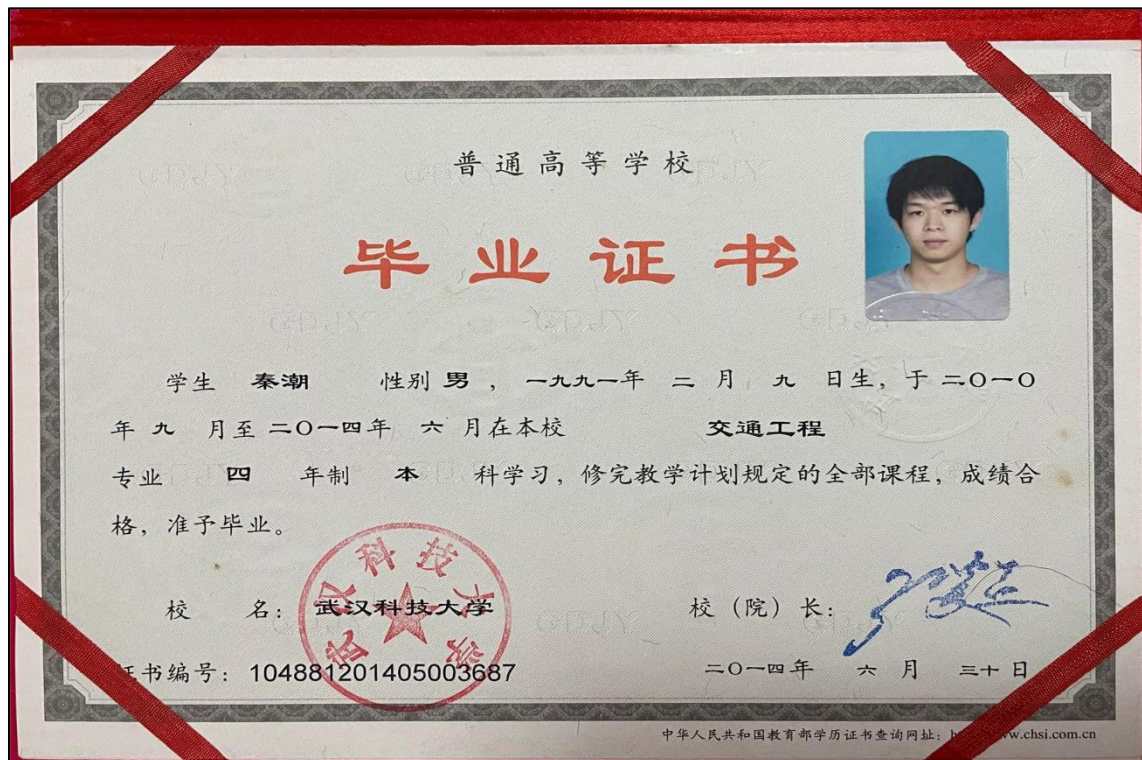 普通高等学校
毕业证书
学生 秦潮 性别 男 ，一九九一年 二 月 九 日生，于 二〇一〇
年 九 月至 二〇一四年 六 月在本校 交通工程
专业 四 年制 本 科学习，修完教学计划规定的全部课程，成绩合
格，准予毕业。
武汉科技大学
校 名：武汉科技大学 校（院）长：
书编号：104881201405003687 二〇一四年 六 月 三十 日
中华人民共和国教育部学历证书查询网址：w.chsi.com.cn